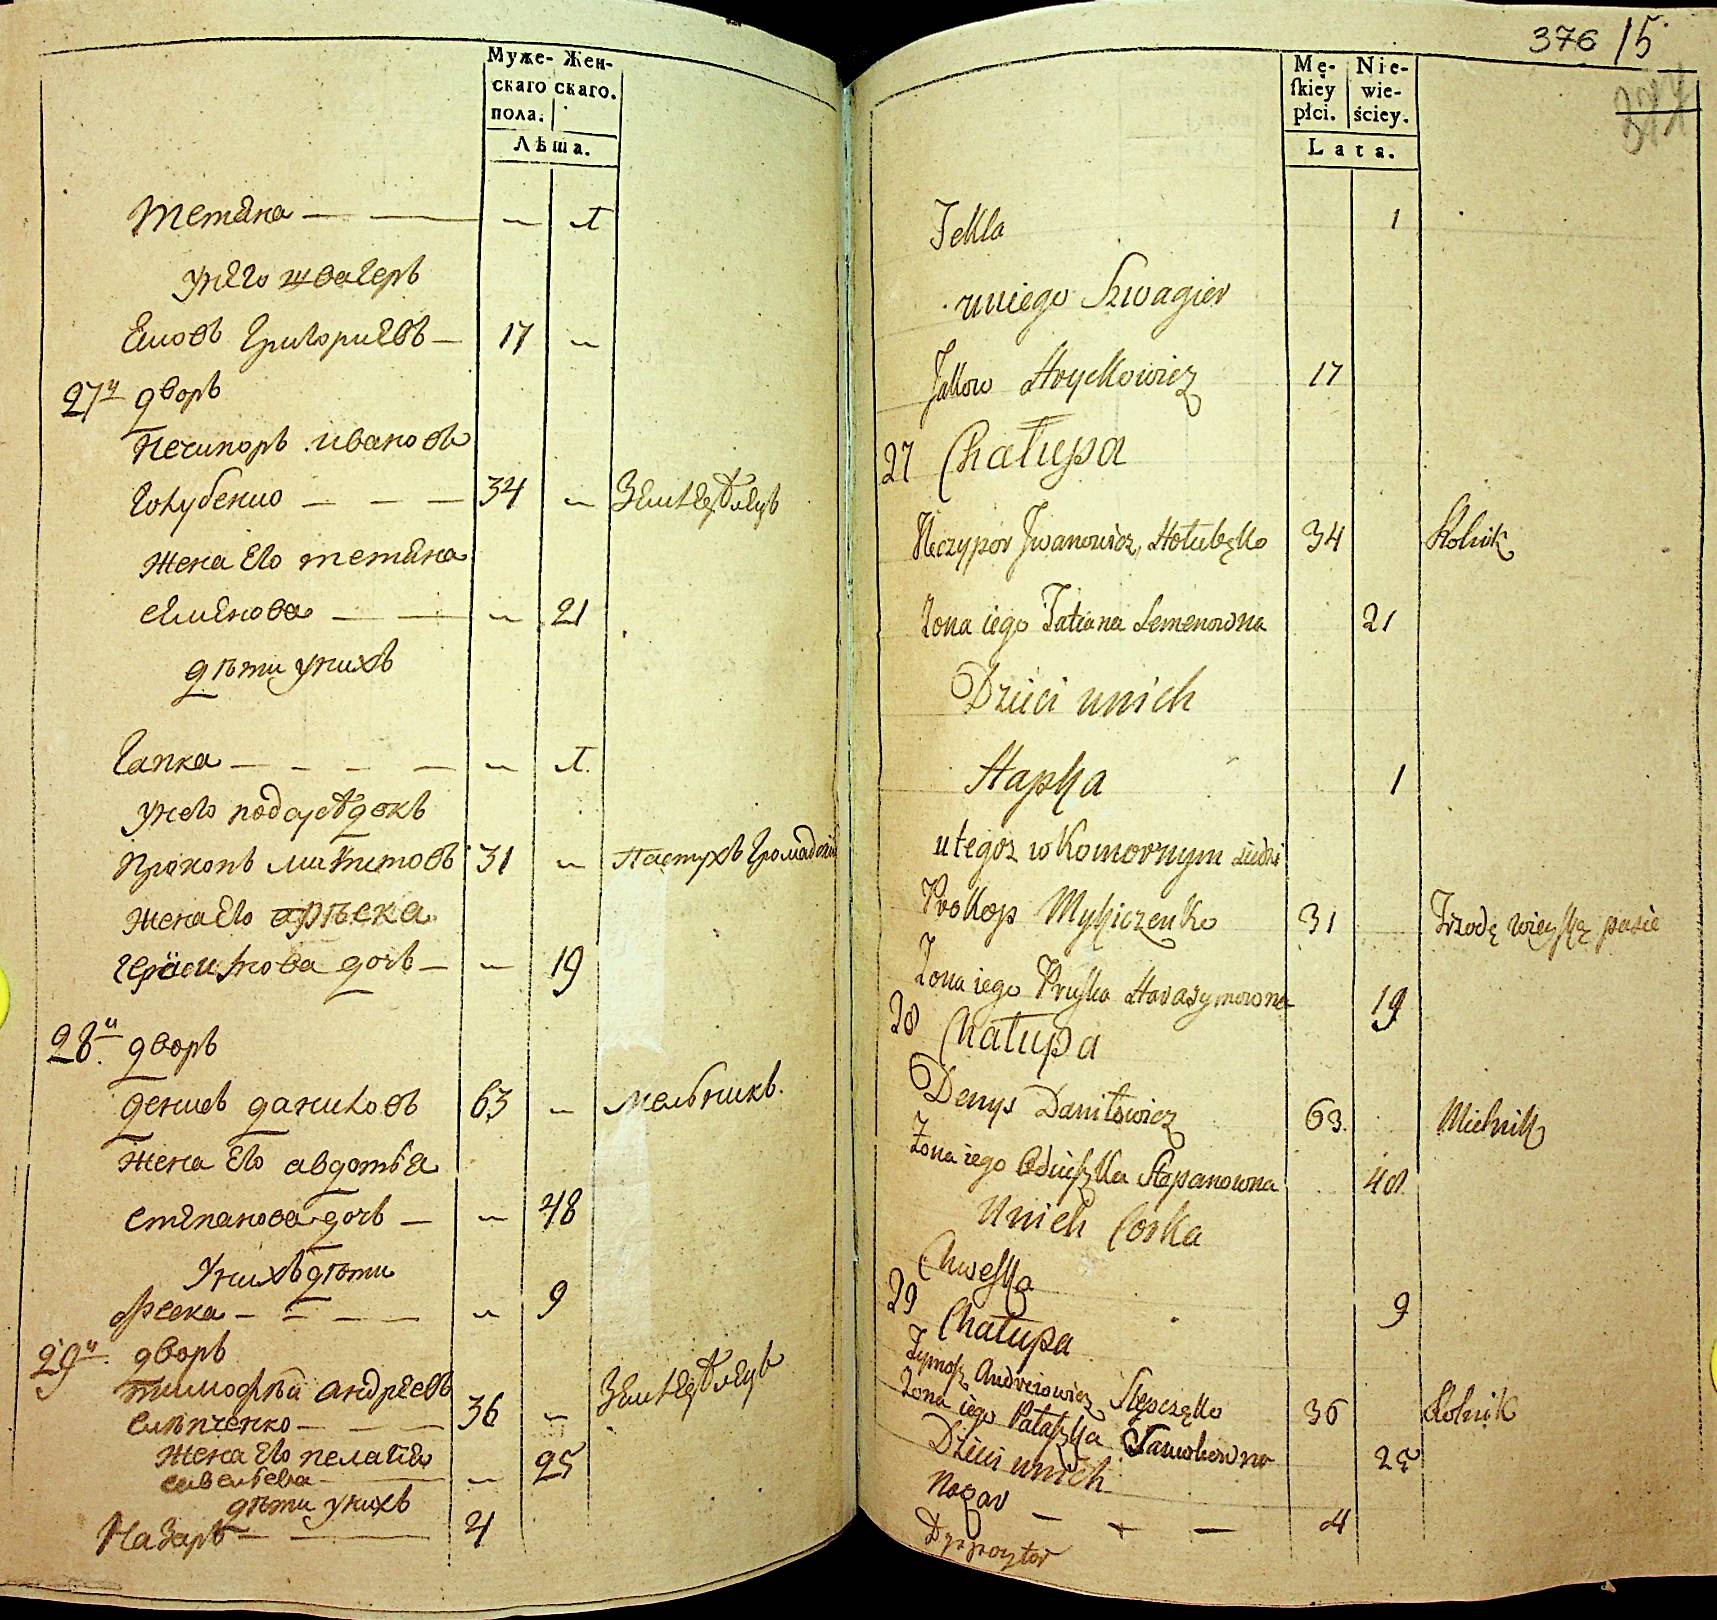 Муже- Жен-
скаго скаго.
пола.
Лѣта.
Тетяна — — 1
унего швагеръ
Яковъ Григориевъ — 17 —
27й дворъ
Нечипоръ ивановъ
Голубенко — — — 34 —
жена его тетяна
семенова — — — 21
дѣти унихъ
Гапка — — — — 1
унего подсуседокъ
Прокопъ микитовъ 31 — Пастухъ
жена его
дочь — — 19
28й дворъ
денисъ даниловъ 63 — мельникъ.
жена его авдотья
степанова дочь — — 48
Унихъ дѣти
— — — 9
29й дворъ
тимофѣй андреевъ
слѣпченко — — — 36 —
жена его пелагея
савельева — — 25
дѣти унихъ
Назаръ — — 4
376 15
377
Mę- Nie-
ſkiey wie-
płci. ściey.
Lata.
Tekla 1
uniego Szwagier
Jakow Hryckowicz 17
27 Chałupa
Neczypor Jwanowicz, Hołubęko 34 Rolnik
Żona iego Tatiana Semenowna 21
Dzieci unich
Hapka 1
utegoz w Komornym siedzi
Prokop Mykiczenko 31 Trzodę wieyską pasie
Żona iego Pryſka Harasymowna 19
28 Chałupa
Denys Daniłowicz 63. Mielnik
Żona iego Stepanowna 48.
Unich Corka
Chweſka 9
29 Chałupa
Tymosz Andreiowicz Slepczęko 36 Rolnik
Żona iego Pałaszka 25
Dzieci unich
Nazar — — — 4